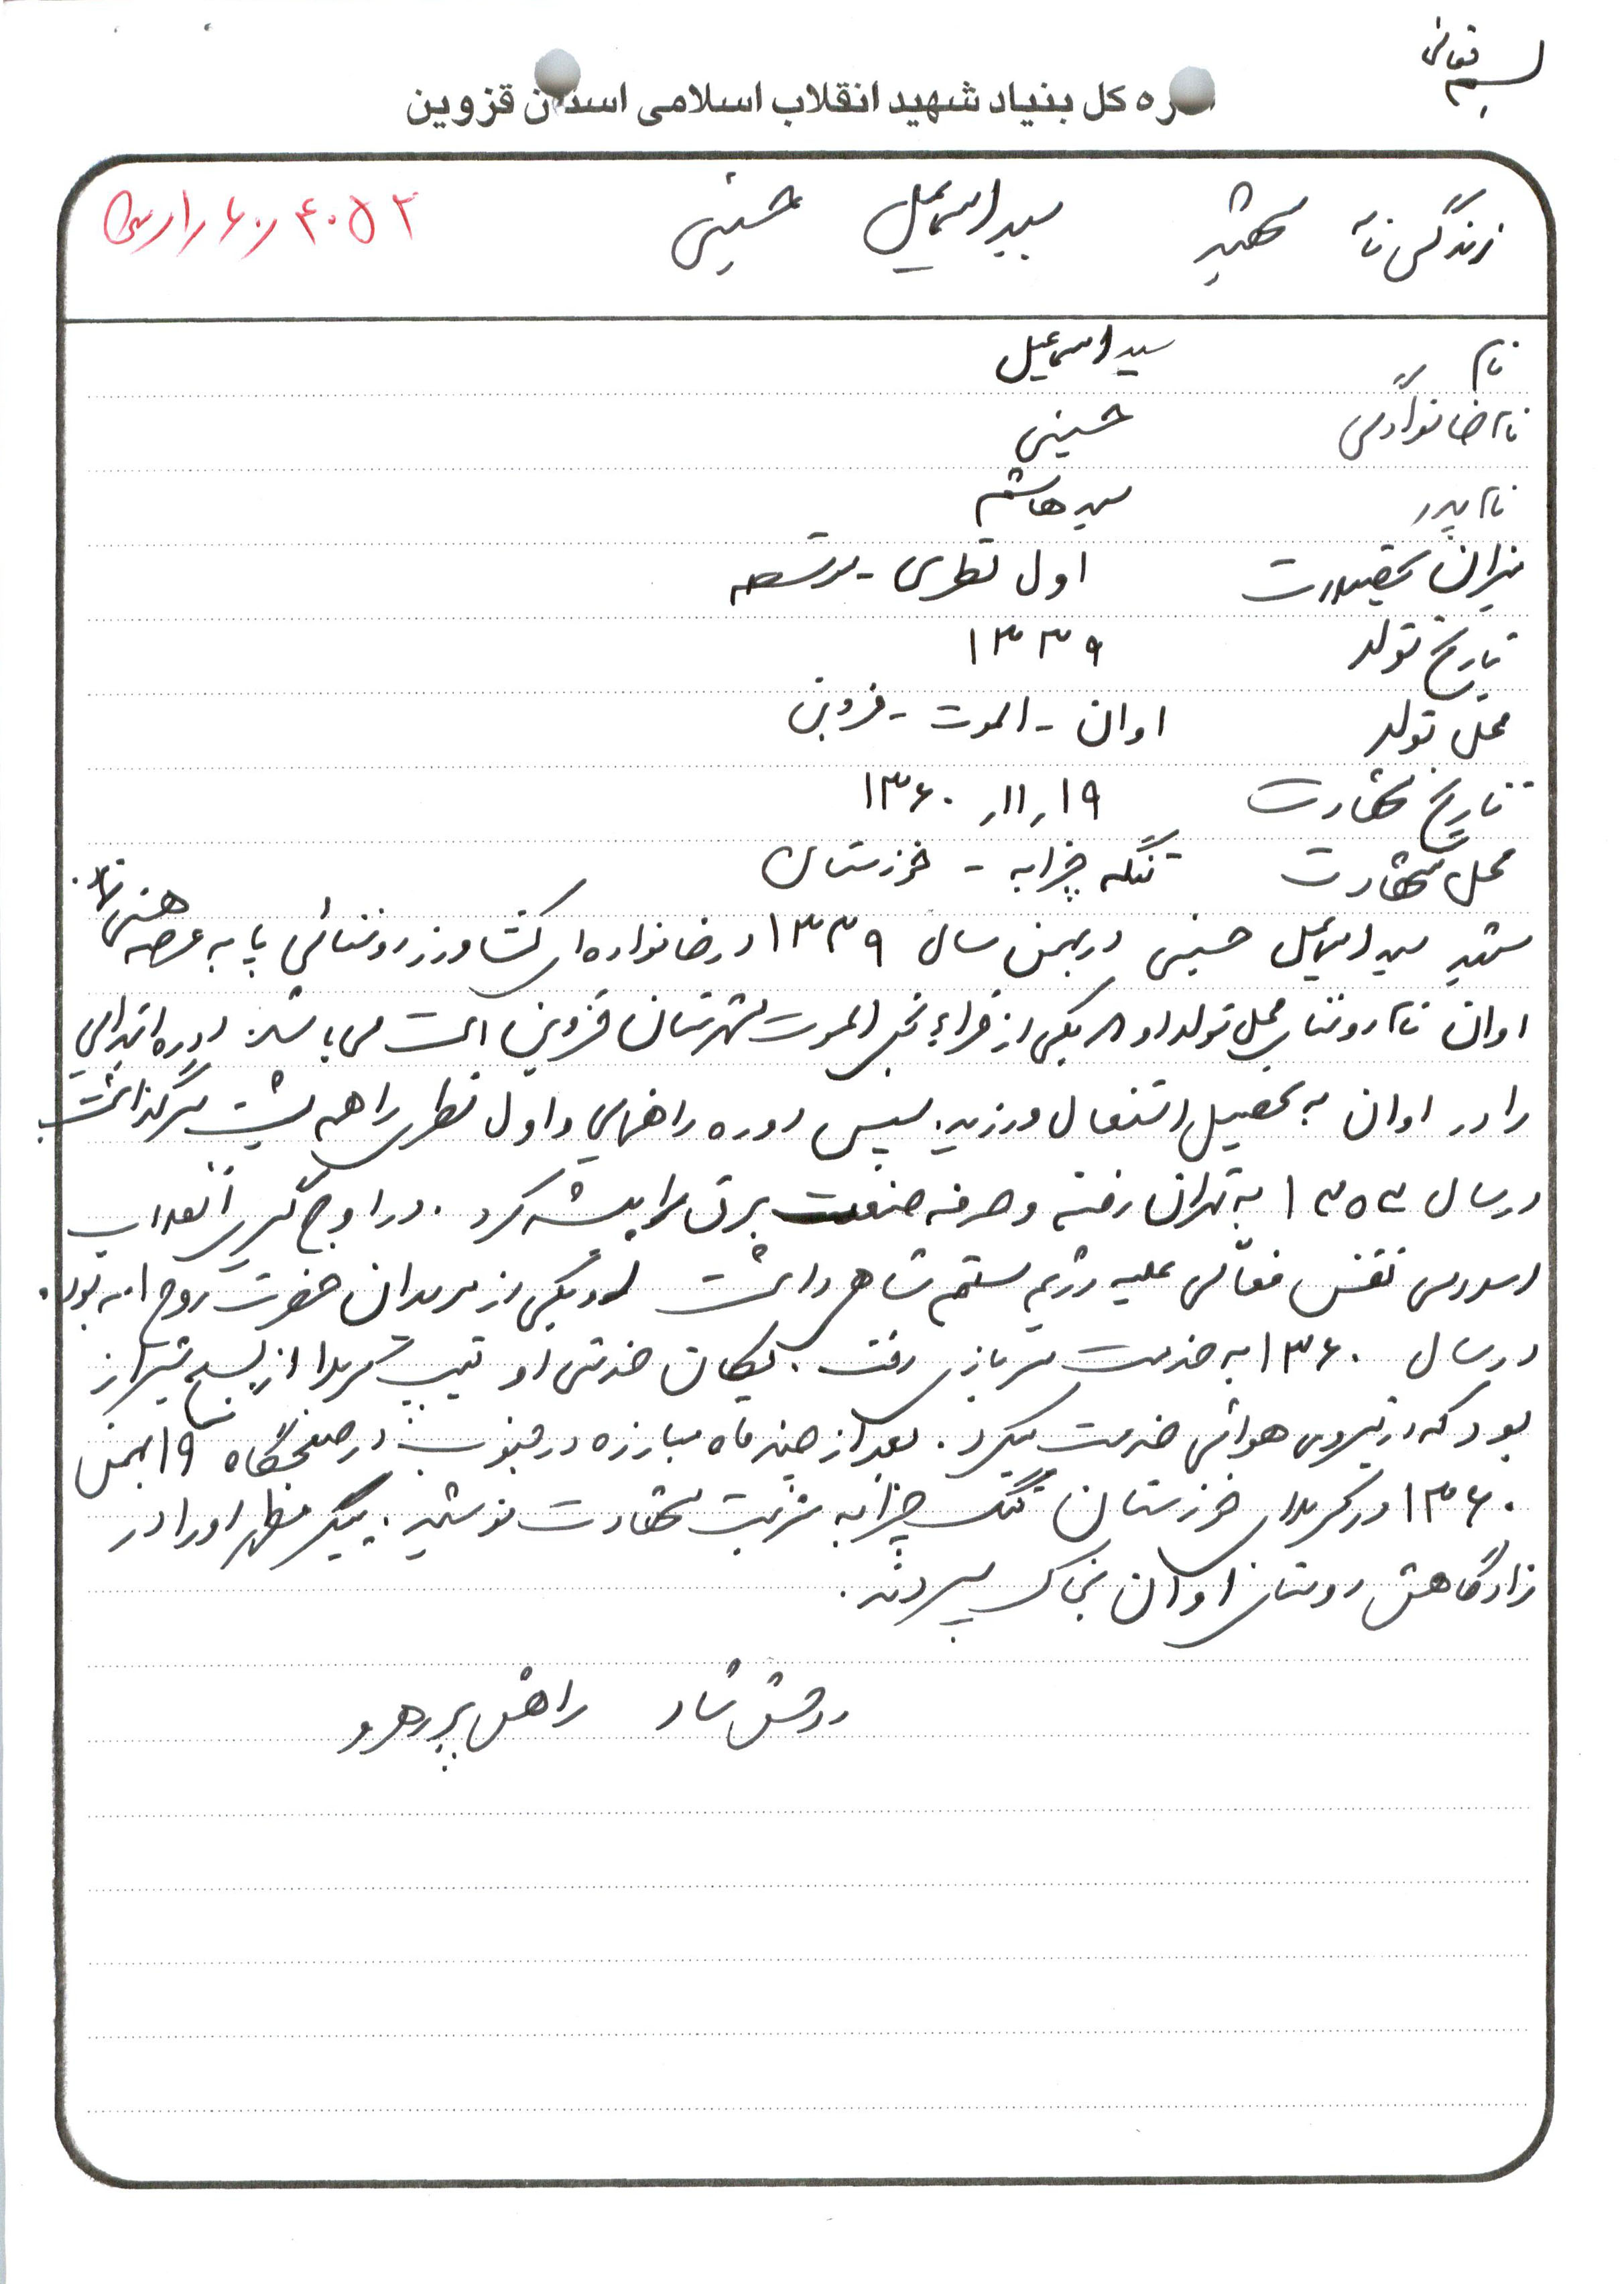 بسمه تعالی
اداره کل بنیاد شهید انقلاب اسلامی استان قزوین
زندگی نامه شهید سید اسمعیل حسینی
نام سید اسمعیل
نام خانوادگی حسینی
نام پدر سید هاشم
میزان تحصیلات اول نظری - متوسطه
تاریخ تولد ۱۳۳۹
محل تولد اوان - الموت - قزوین
تاریخ شهادت ۱۹ر۱۱ر۱۳۶۰
محل شهادت تنگه چزابه - خوزستان
شهید سید اسمعیل حسینی در بهمن سال ۱۳۳۹ در خانواده ای کشاورز روستائی پا به عرصه هستی نهاد.
اوان نام روستای محل تولد او که یکی از قراء بخش الموت شهرستان قزوین است می باشد. دوره ابتدایی
را در اوان به تحصیل اشتغال ورزید. سپس دوره راهنمایی و اول نظری را هم پشت سر گذاشت.
در سال ۱۳۵۳ به تهران رفته و حرفه صنعت برق را پیشه کرد. در اوج گیری انقلاب
اسلامی نقش فعالی علیه رژیم ستم شاهی داشت او یکی از مریدان حضرت روح الله بود.
در سال ۱۳۶۰ به خدمت سربازی رفت. یگان خدمتی او تیپ کربلا از بسیج شیراز
بود که در نیروی هوائی خدمت میکرد. بعد از چند ماه مبارزه در جنوب در صبحگاه ۱۹ بهمن
۱۳۶۰ در کربلای خوزستان تنگه چزابه شربت شهادت نوشید. پیکر مطهر او را در
زادگاهش روستای اوان بخاک سپردند.
روحش شاد راهش پر رهرو